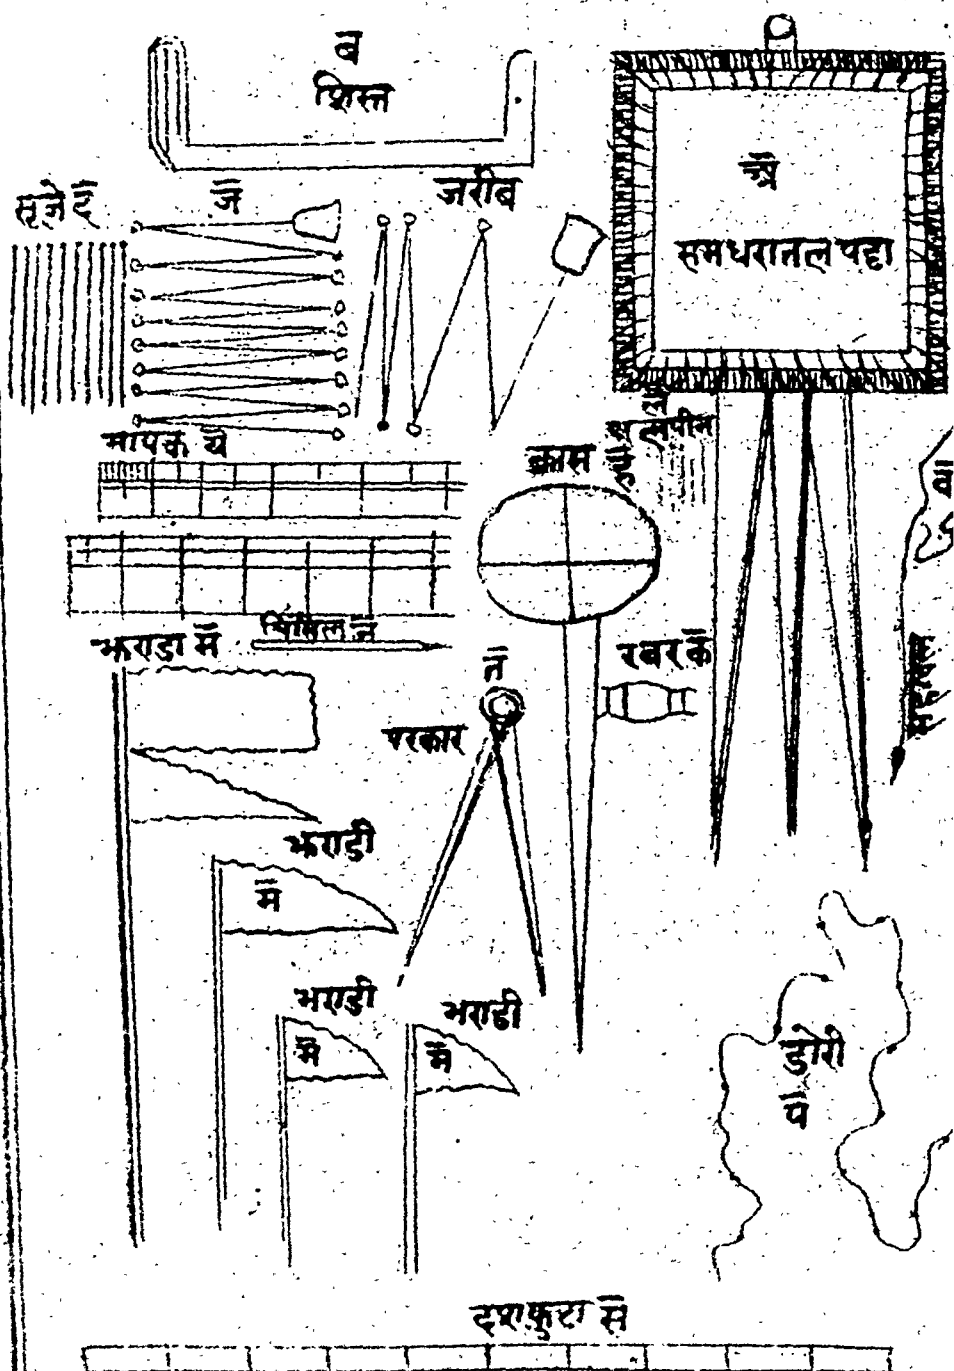 ब
शिस्त
सूजे दं
जं
जरीब
अं
समधरातल पट्टा
मापक यं
क्रास
आलपीन
झण्डा मं
पेंसिल नं
तं
परकार
रबर कं
झण्डी
मं
झण्डी
मं
झण्डी
मं
डोरी
पं
दशफुटा सं